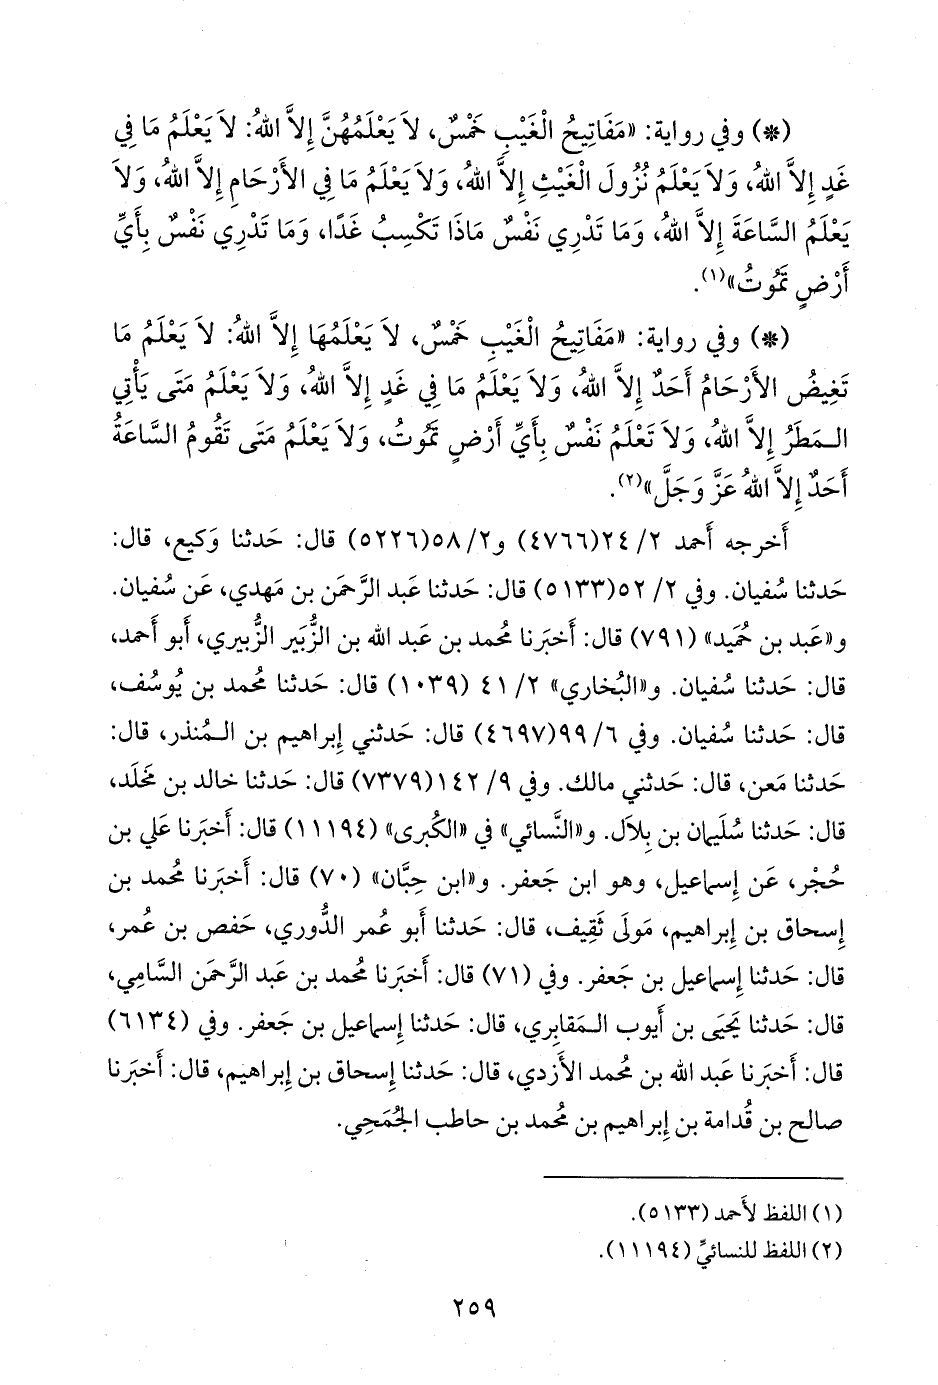 (*) وفي رواية: «مَفَاتِيحُ الْغَيْبِ خَمْسٌ، لاَ يَعْلَمُهُنَّ إِلاَّ اللهُ: لاَ يَعْلَمُ مَا فِي
غَدٍ إِلاَّ اللهُ، وَلاَ يَعْلَمُ نُزُولَ الْغَيْثِ إِلاَّ اللهُ، وَلاَ يَعْلَمُ مَا فِي الأَرْحَامِ إِلاَّ اللهُ، وَلاَ
يَعْلَمُ السَّاعَةَ إِلاَّ اللهُ، وَمَا تَدْرِي نَفْسٌ مَاذَا تَكْسِبُ غَدًا، وَمَا تَدْرِي نَفْسٌ بِأَيِّ
أَرْضٍ تَمُوتُ»(١).
(*) وفي رواية: «مَفَاتِيحُ الْغَيْبِ خَمْسٌ، لاَ يَعْلَمُهَا إِلاَّ اللهُ: لاَ يَعْلَمُ مَا
تَغِيضُ الأَرْحَامُ أَحَدٌ إِلاَّ اللهُ، وَلاَ يَعْلَمُ مَا فِي غَدٍ إِلاَّ اللهُ، وَلاَ يَعْلَمُ مَتَى يَأْتِي
الـمَطَرُ إِلاَّ اللهُ، وَلاَ تَعْلَمُ نَفْسٌ بِأَيِّ أَرْضٍ تَمُوتُ، وَلاَ يَعْلَمُ مَتَى تَقُومُ السَّاعَةُ
أَحَدٌ إِلاَّ اللهُ عَزَّ وَجَلَّ»(٢).
أَخرجه أَحمد ٢/ ٢٤(٤٧٦٦) و٢/ ٥٨(٥٢٢٦) قال: حَدثنا وَكيع، قال:
حَدثنا سُفيان. وفي ٢/ ٥٢(٥١٣٣) قال: حَدثنا عَبد الرَّحمَن بن مَهدي، عَن سُفيان.
و«عَبد بن حُمَيد» (٧٩١) قال: أَخبَرنا مُحمد بن عَبد الله بن الزُّبَير الزُّبيري، أَبو أَحمد،
قال: حَدثنا سُفيان. و«البُخاري» ٢/ ٤١ (١٠٣٩) قال: حَدثنا مُحمد بن يُوسُف،
قال: حَدثنا سُفيان. وفي ٦/ ٩٩(٤٦٩٧) قال: حَدثني إِبراهيم بن الـمُنذر، قال:
حَدثنا مَعن، قال: حَدثني مالك. وفي ٩/ ١٤٢(٧٣٧٩) قال: حَدثنا خالد بن مَخلَد،
قال: حَدثنا سُلَيمان بن بِلاَل. و«النَّسائي» في «الكُبرى» (١١١٩٤) قال: أَخبَرنا عَلي بن
حُجْر، عَن إِسماعيل، وهو ابن جَعفر. و«ابن حِبَّان» (٧٠) قال: أَخبَرنا مُحمد بن
إِسحاق بن إِبراهيم، مَولَى ثَقِيف، قال: حَدثنا أَبو عُمر الدُّوري، حَفص بن عُمر،
قال: حَدثنا إِسماعيل بن جَعفر. وفي (٧١) قال: أَخبَرنا مُحمد بن عَبد الرَّحمَن السَّامِي،
قال: حَدثنا يَحيَى بن أَيوب الـمَقابِري، قال: حَدثنا إِسماعيل بن جَعفر. وفي (٦١٣٤)
قال: أَخبَرنا عَبد الله بن مُحمد الأَزدي، قال: حَدثنا إِسحاق بن إِبراهيم، قال: أَخبَرنا
صالح بن قُدامة بن إِبراهيم بن مُحمد بن حاطب الجُمَحِي.
(١) اللفظ لأَحمد (٥١٣٣).
(٢) اللفظ للنسائيِّ (١١١٩٤).
٢٥٩